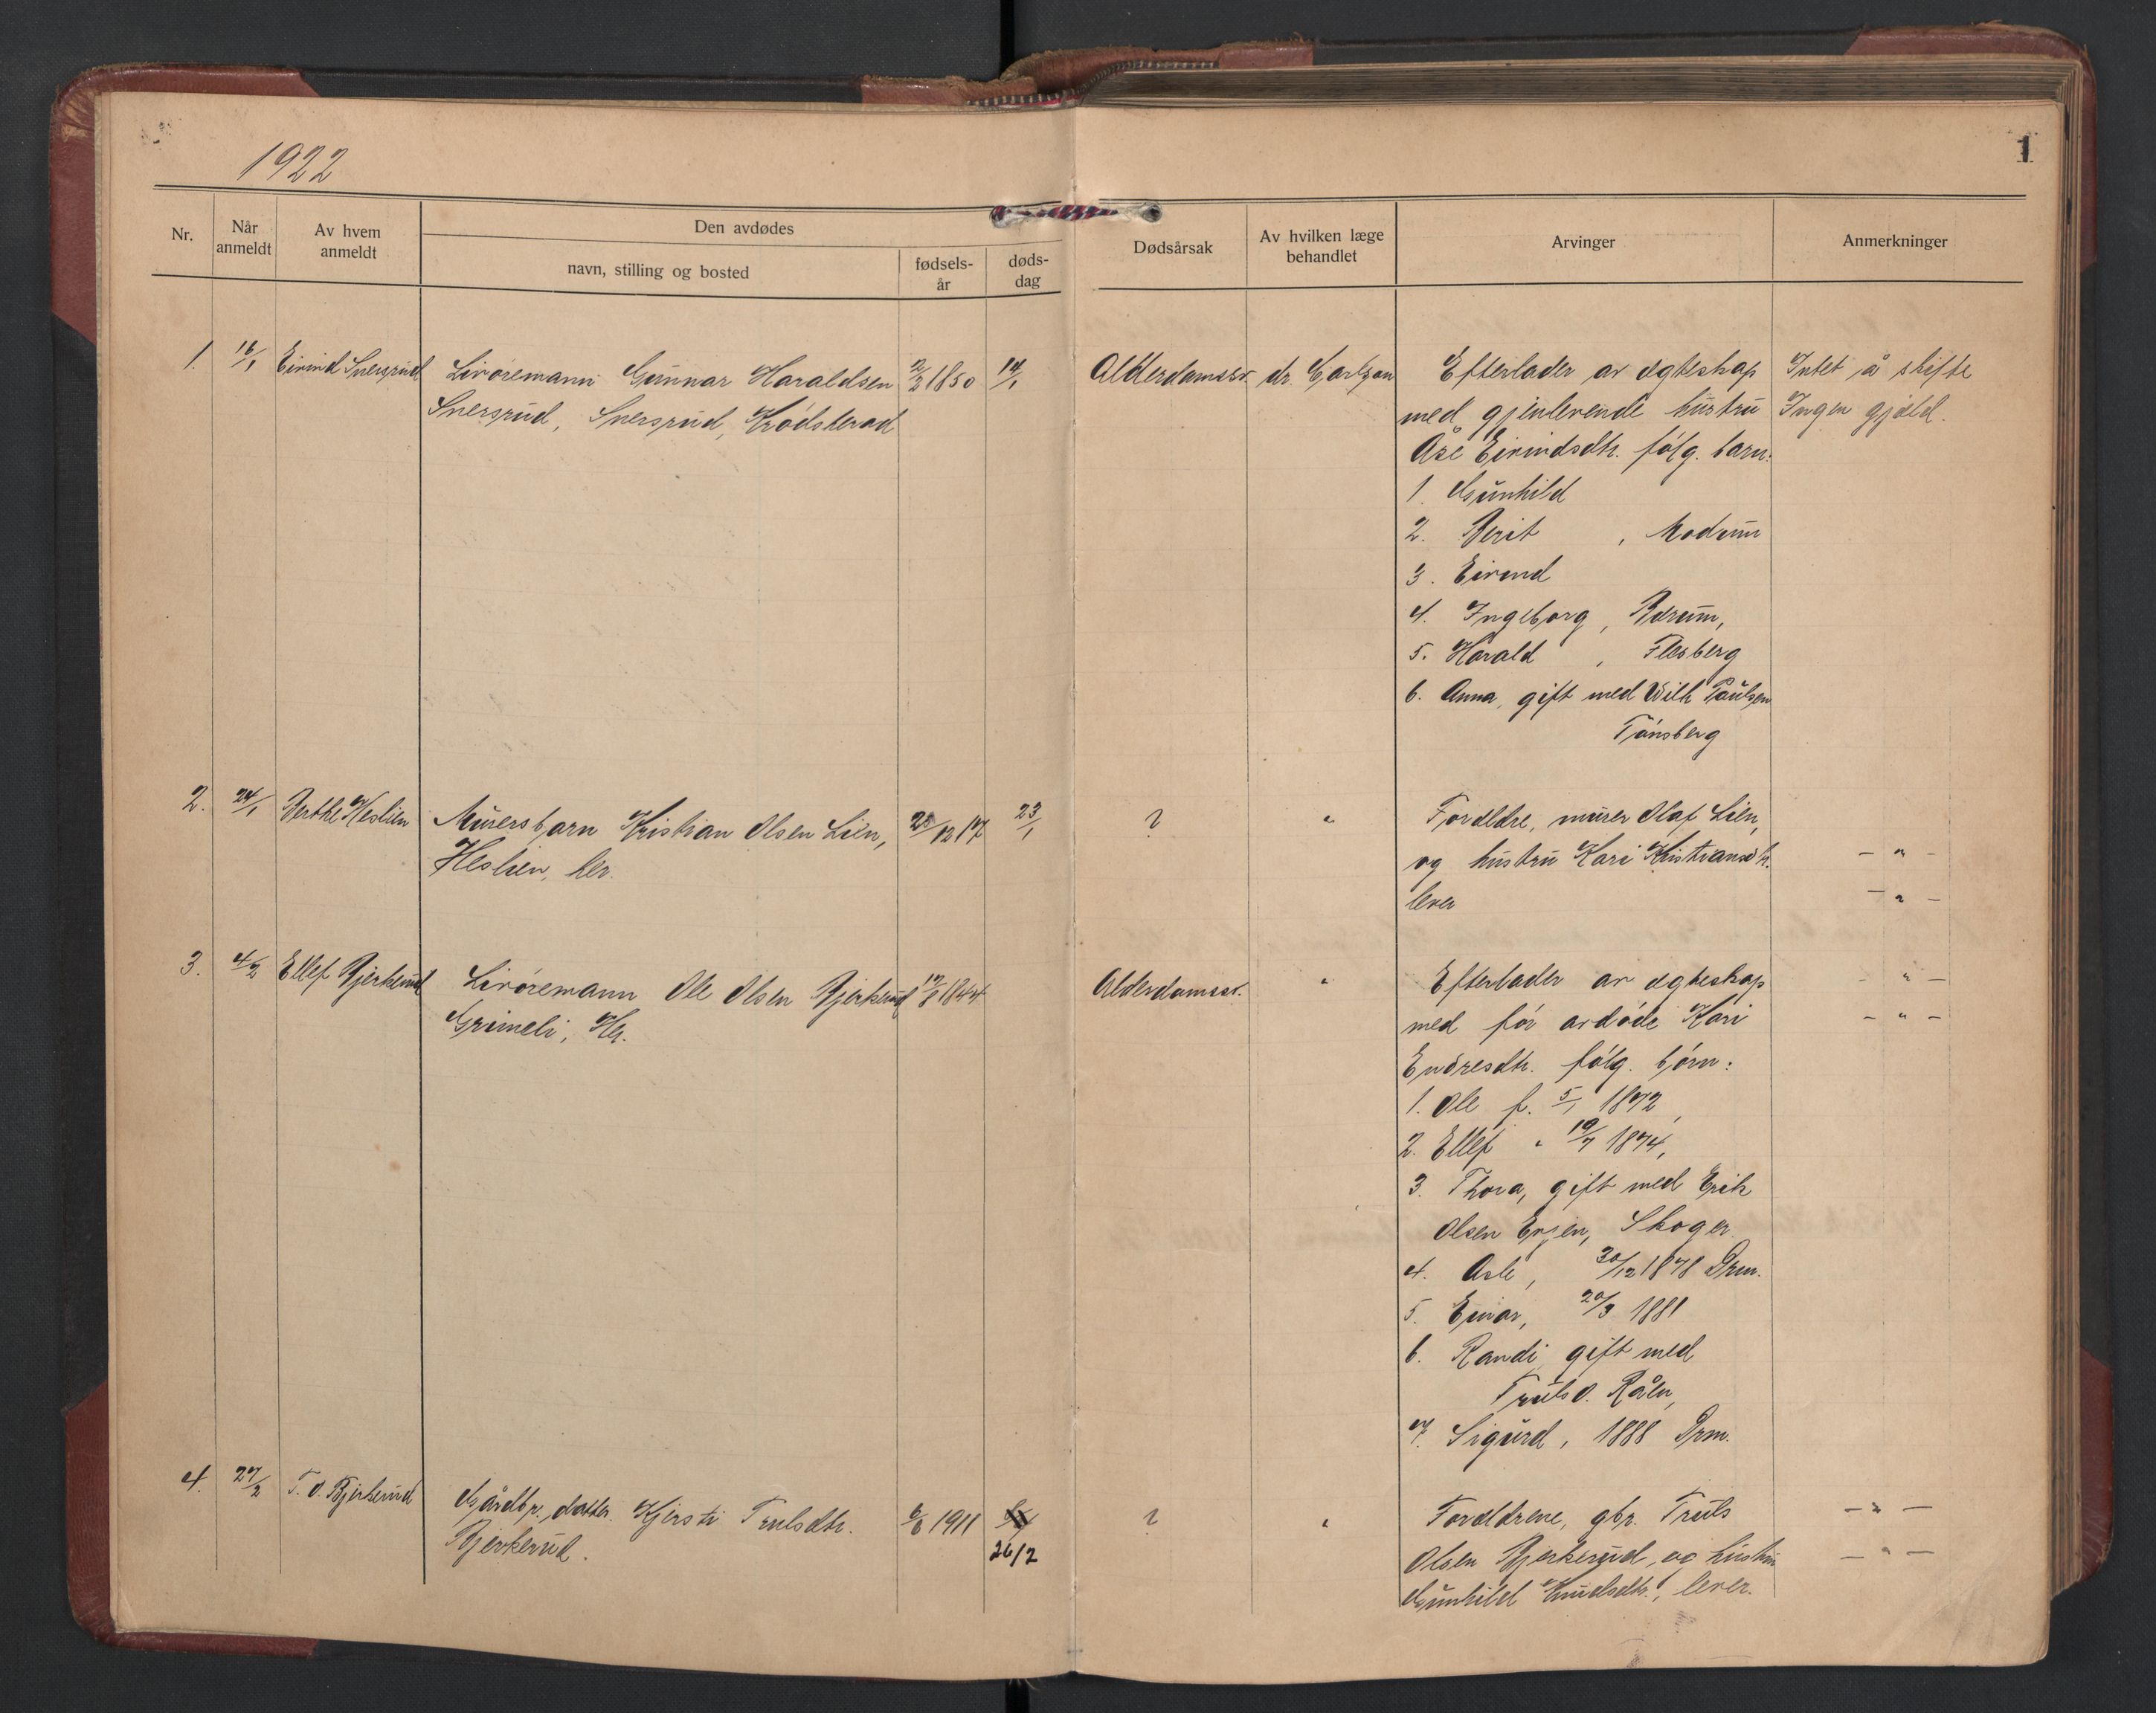 1922
1
Nr.
Når anmeldt
Av hvem anmeldt
Den avdødes
navn, stilling og bosted
fødsels-år
døds-dag
Dødsårsak
Av hvilken læge behandlet
Arvinger
Anmerkninger
1. 16/1 Eivind Snersrud Livøremann Gunnar Haraldsen 2/2 1850 14/1 Alderdomssv. dr. Carlson
Snersrud, Snersrud, Krødsherad
Efterlader av egteskap
med gjenlevende hustru
Åse Eivindsdtr. følg. barn:
1. Gunhild
2. Berit , Modum
3. Eivind
4. Ingeborg, Bærum,
5. Harald , Flesberg
6. Anna, gift med Wilh Paulsen
Tønsberg
Intet å skifte
Ingen gjæld.
2. 24/1 Berthe Heslien Murersbarn Kristian Olsen Lien, 20/12 17 23/1 ? "
Heslien, her.
Foreldre, murer Olaf Lien,
og hustru Kari Kristiansdtr.
lever
— " —
— " —
3. 4/2 Ellef Bjerkerud Livøremann Ole Olsen Bjerkerud 17/8 1844 Alderdomssv. "
Grimeli, Her.
Efterlader av egteskap
med før avdøde Kari
Endresdtr. følg. børn:
1. Ole f. 5/1 1872,
2. Ellef " 19/7 1874,
3. Thora, gift med Erik
Olsen, Skoger.
4. Asle, 30/12 1878 Drm.
5. Einar, 20/3 1881
6. Randi, gift med
Truls O. Råen,
7. Sigurd, 1888 Drm.
— " —
— " —
4. 27/2 T. O. Bjerkerud Gårdbr. datter Kjersti Trulsdtr. 6/6 1911 26/2 ? "
Bjerkerud.
Foreldrene, gbr. Truls
Olsen Bjerkerud, og hustru
Gunhild Knudsdtr., lever.
— " —
— " —